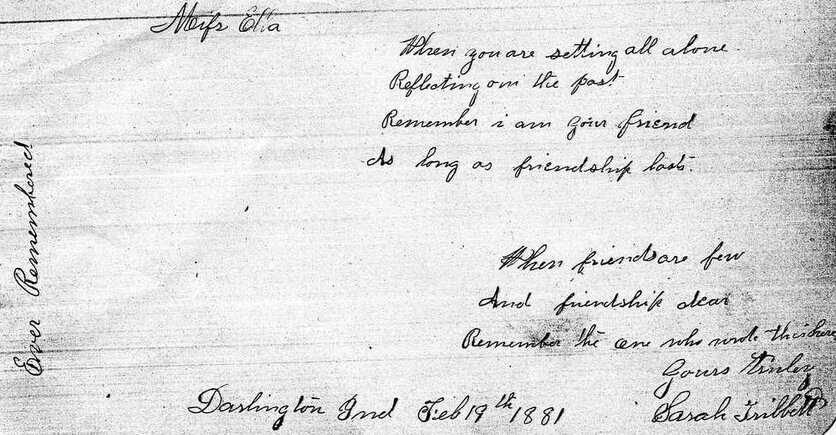 Miss Ella
When you are setting all alone
Reflecting on the past
Remember i am your friend
As long as friendship lasts.
Ever Remembered
When friends are few
And friendship dear
Remember the one who wrote this here
Yours Truley
Darlington Ind Feb 19th 1881 Sarah Tribbett